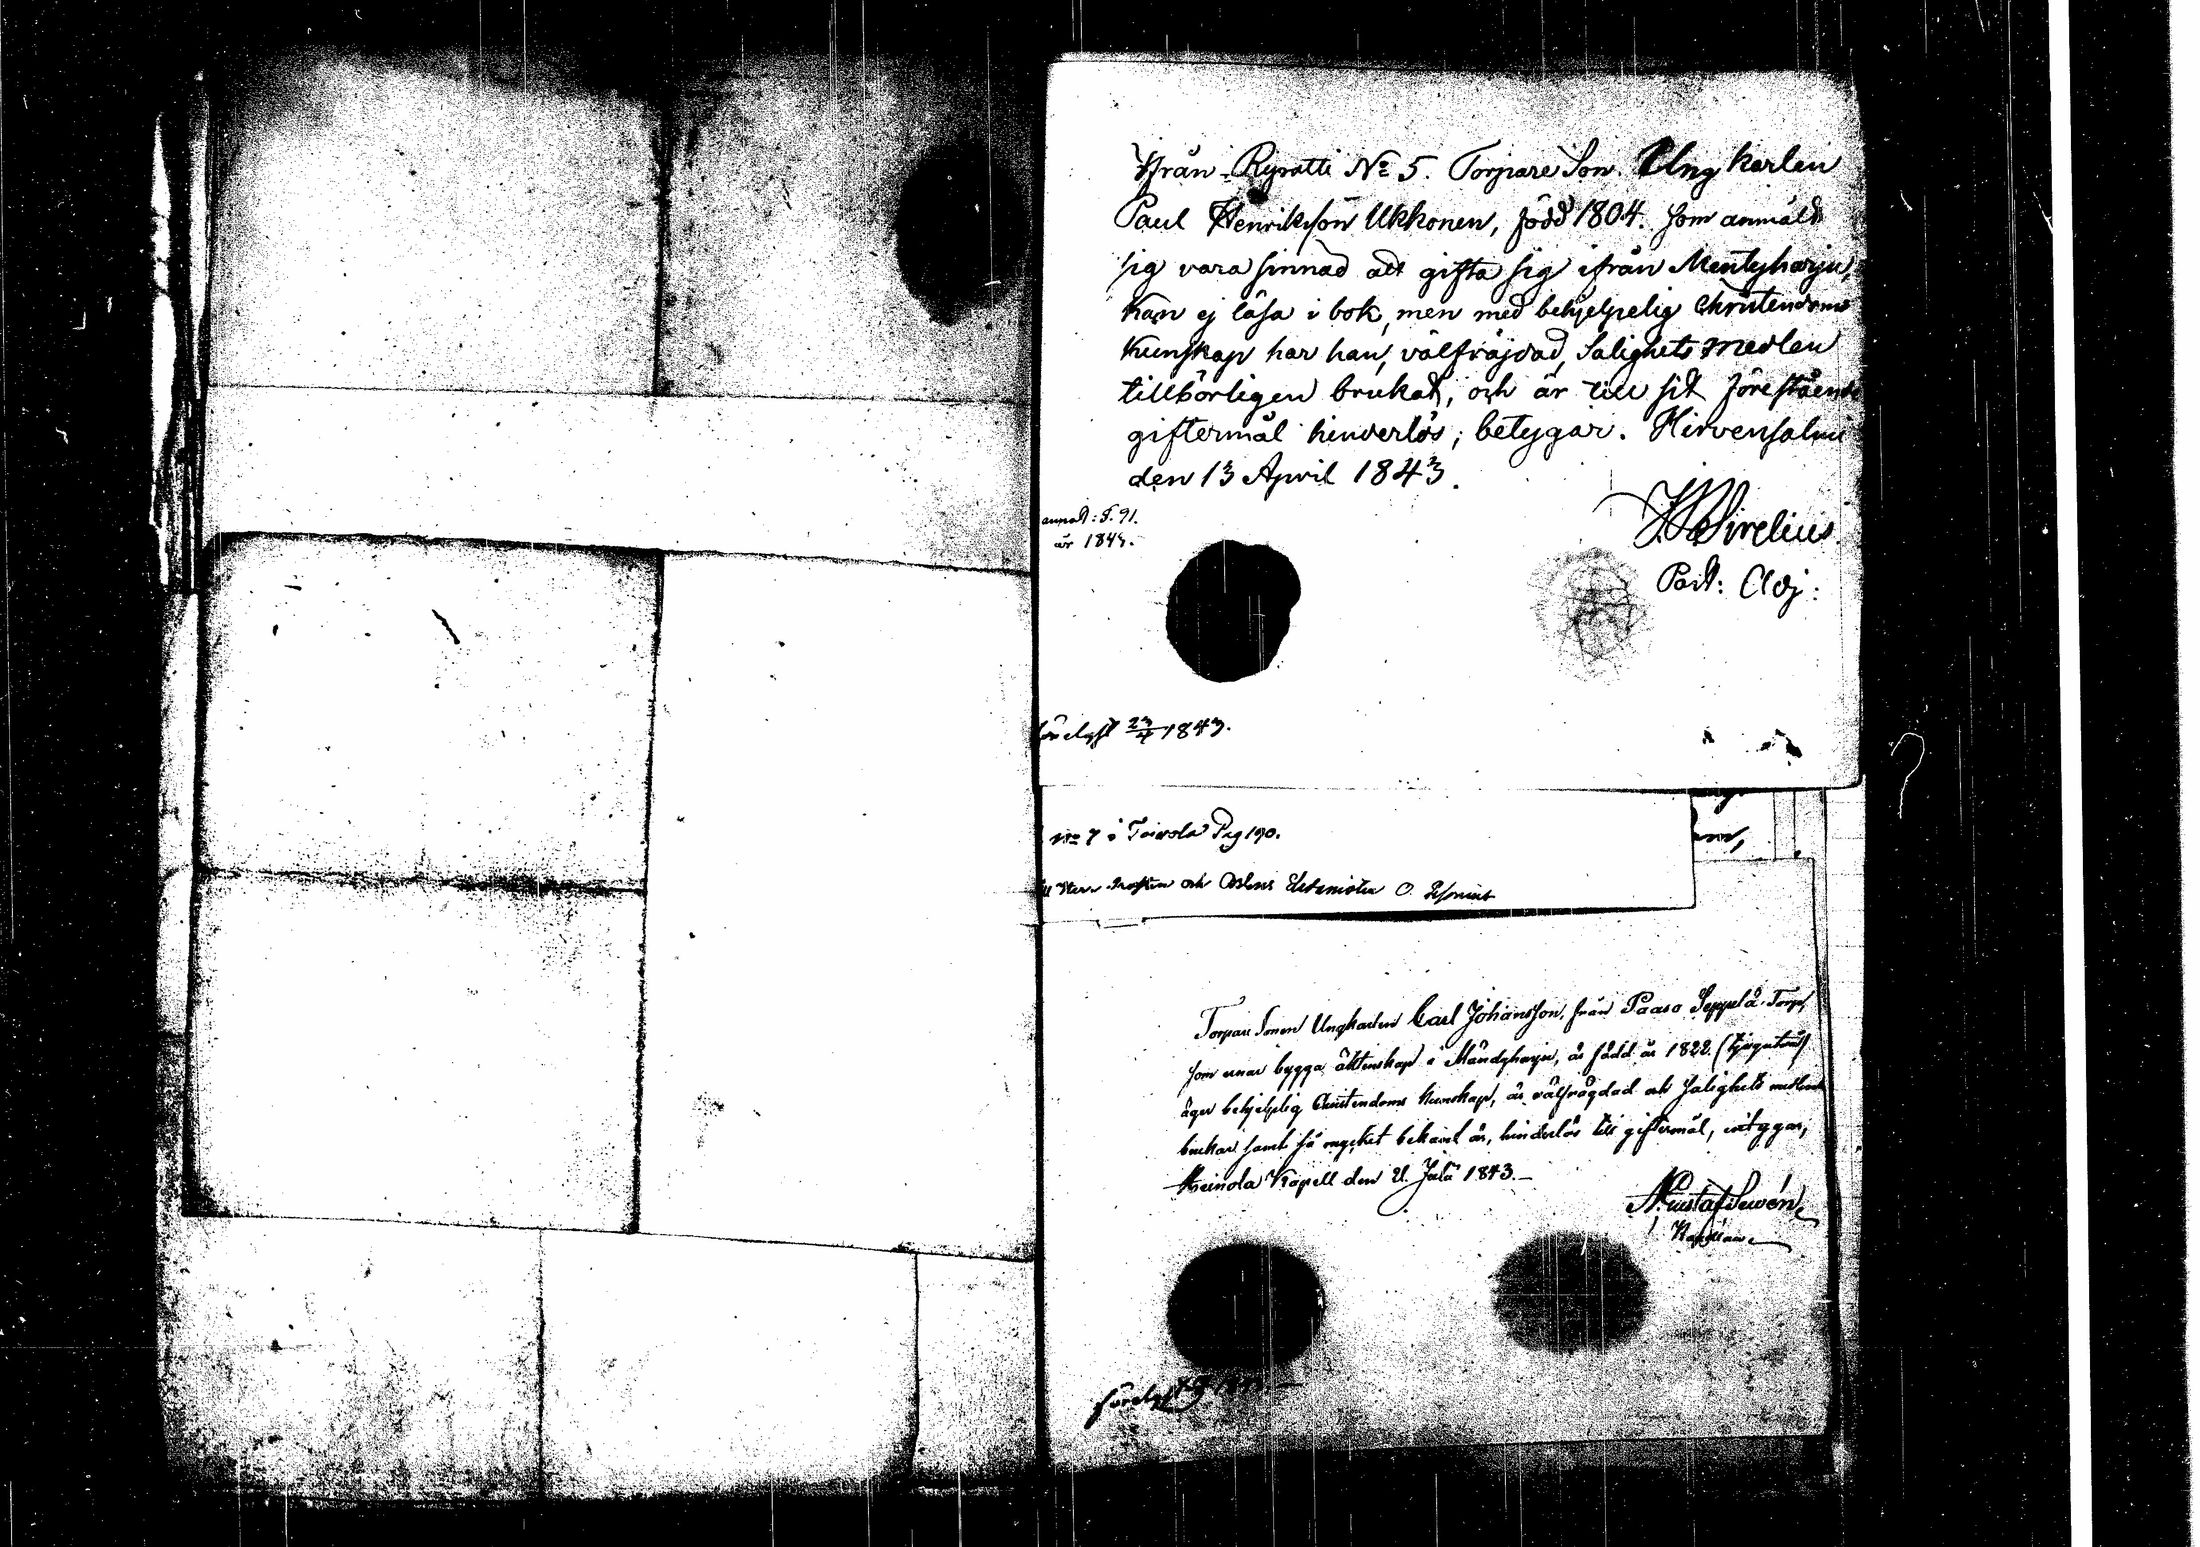 Ifrån Ryratti No 5. Torpare Son Ung karlen
Paul Henriksson Ukkonen, född 1804. som anmält
sig vara sinnad att gifta sig ifrån Mentyharju,
kan ej läsa i bok, men med behjelpelig Christendoms
kunskap har han, välfräjdad, Salighets medlen
tillbörligen brukat, och är till sit förestående
giftermål hinderlös; betygar. Hirvensalmi
den 13 April 1843.
Sirelius.
Past: Adj:
annot: F. 91.
år 1843.
förelyst 23/4 1843.
No 7 i Toivola Pag 190.
Herr Prosten och
Torpare Sonen Ungkarlen Carl Johansson, från Paaso Seppälä Torp,
som ernar bygga äktenskap i Mändyharju, är född år 1822.
äger behjelplig Christendoms kunskap, är välfrägdad och salighets medlen
brukar samt så mycket bekant är, hinderlös till giftermål, intygar,
Heinola Kapell den 21. Julii 1843.
Gustaf Sewón
Kapellan
förelyst